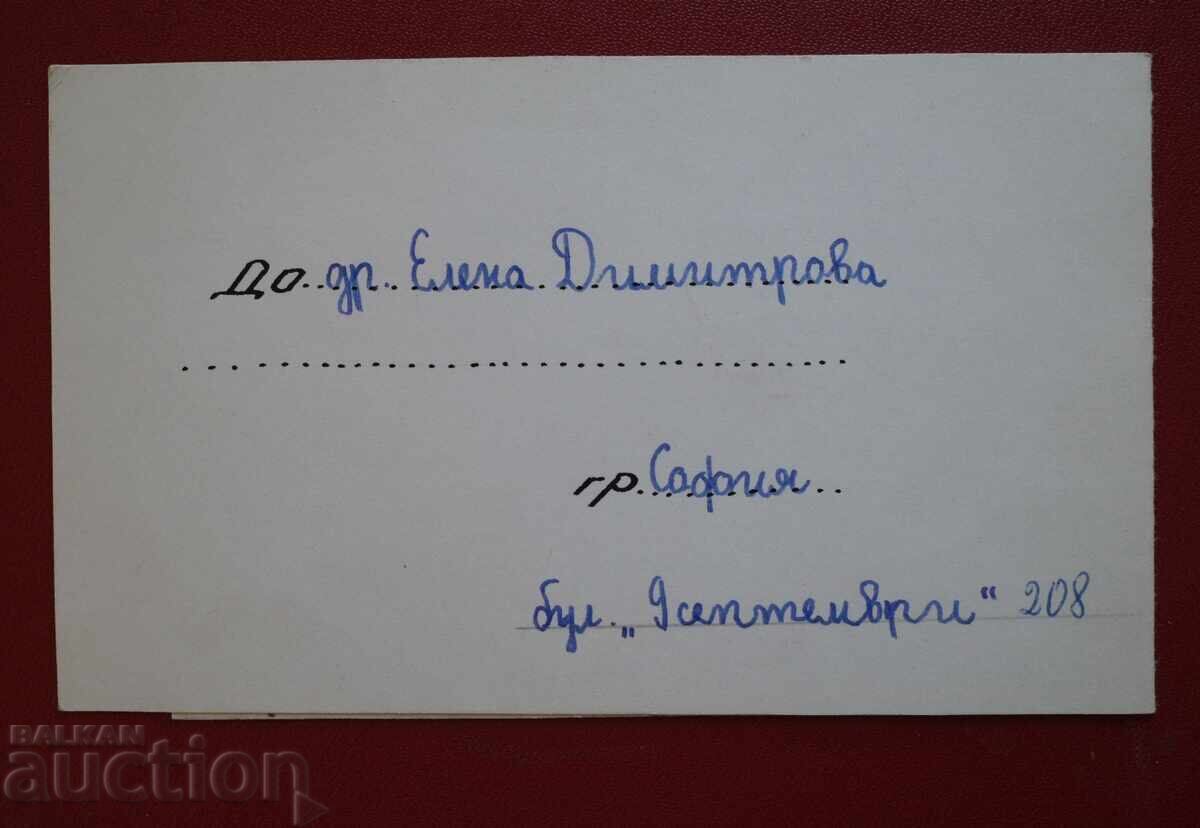 До др. Елена Димитрова
гр. София
бул. „9 септември“ 208
BALKAN
auction